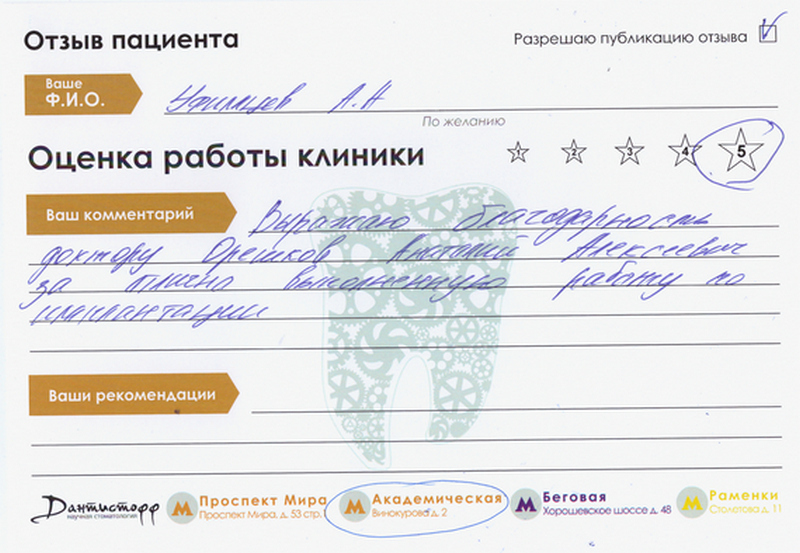 Отзыв пациента
Разрешаю публикацию отзыва
Ваше
Ф.И.О.
Уфимцев А.Н
По желанию
Оценка работы клиники
1 2 3 4 5
Ваш комментарий
Выражаю благодарность
доктору Орешков Анатолий Алексеевич
за отлично выполненную работу по
имплантации
Ваши рекомендации
Дантистофф
научная стоматология
М Проспект Мира
Проспект Мира, д. 53 стр.
М Академическая
Винокурова д. 2
М Беговая
Хорошевское шоссе д. 48
М Раменки
Столетова д. 11